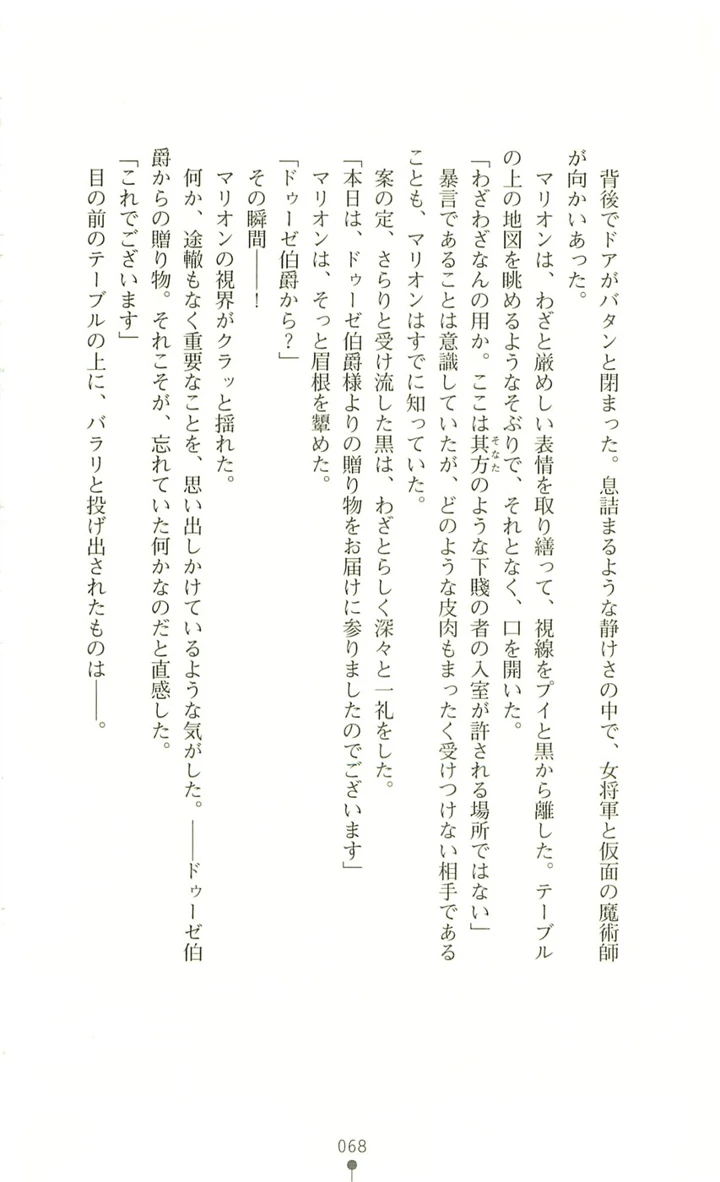 背後でドアがバタンと閉まった。息詰まるような静けさの中で、女将軍と仮面の魔術師
が向かいあった。
マリオンは、わざと厳めしい表情を取り繕って、視線をプイと黒から離した。テーブル
の上の地図を眺めるようなそぶりで、それとなく、口を開いた。
「わざわざなんの用か。ここは其方そなたのような下賤の者の入室が許される場所ではない」
暴言であることは意識していたが、どのような皮肉もまったく受けつけない相手である
ことも、マリオンはすでに知っていた。
案の定、さらりと受け流した黒は、わざとらしく深々と一礼をした。
「本日は、ドゥーゼ伯爵様よりの贈り物をお届けに参りましたのでございます」
マリオンは、そっと眉根を顰めた。
「ドゥーゼ伯爵から？」
その瞬間――！
マリオンの視界がクラッと揺れた。
何か、途轍もなく重要なことを、思い出しかけているような気がした。――ドゥーゼ伯
爵からの贈り物。それこそが、忘れていた何かなのだと直感した。
「これでございます」
目の前のテーブルの上に、バラリと投げ出されたものは――。
068